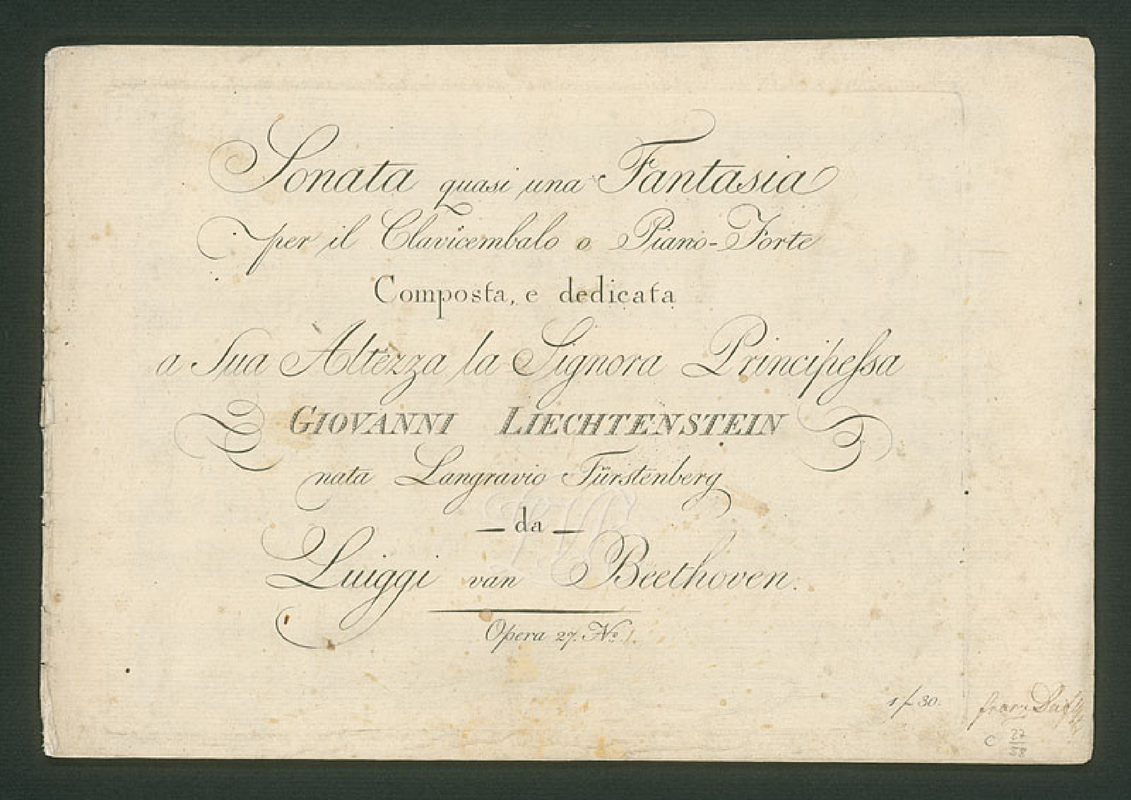 Sonata quasi una Fantasia
per il Clavicembalo o Piano-Forte
Composta, e dedicata
a Sua Altezza la Signora Principeſsa
GIOVANNI LIECHTENSTEIN
nata Langravio Fürstenberg
— da —
Luiggi van Beethoven.
Opera 27. No. 1.
1 f 30.
C 27
58